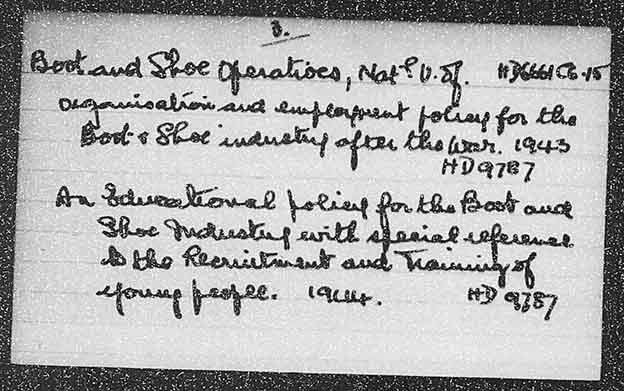 3.
Boot and Shoe Operatives, Natl U. of. HD6661 C6-15
Organisation and employment policy for the
Boot & Shoe industry after the war. 1943
HD 9787
An Educational policy for the Boot and
Shoe Industry with special reference
to the Recruitment and Training of
young people. 1944. HD 9787